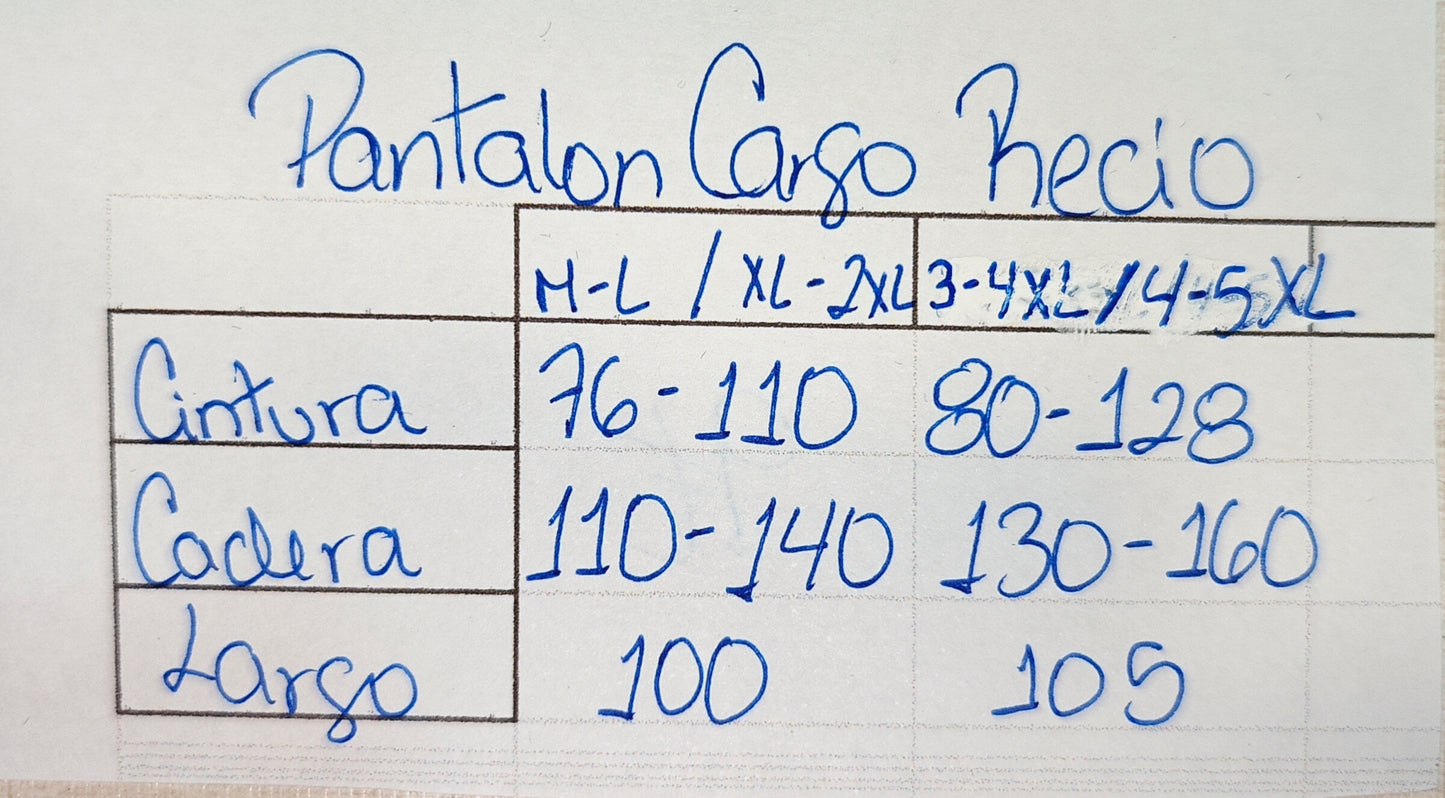 Pantalon Cargo Recio
M-L / XL-2XL 3-4XL/4-5XL
Cintura 76-110 80-128
Cadera 110-140 130-160
Largo 100 105